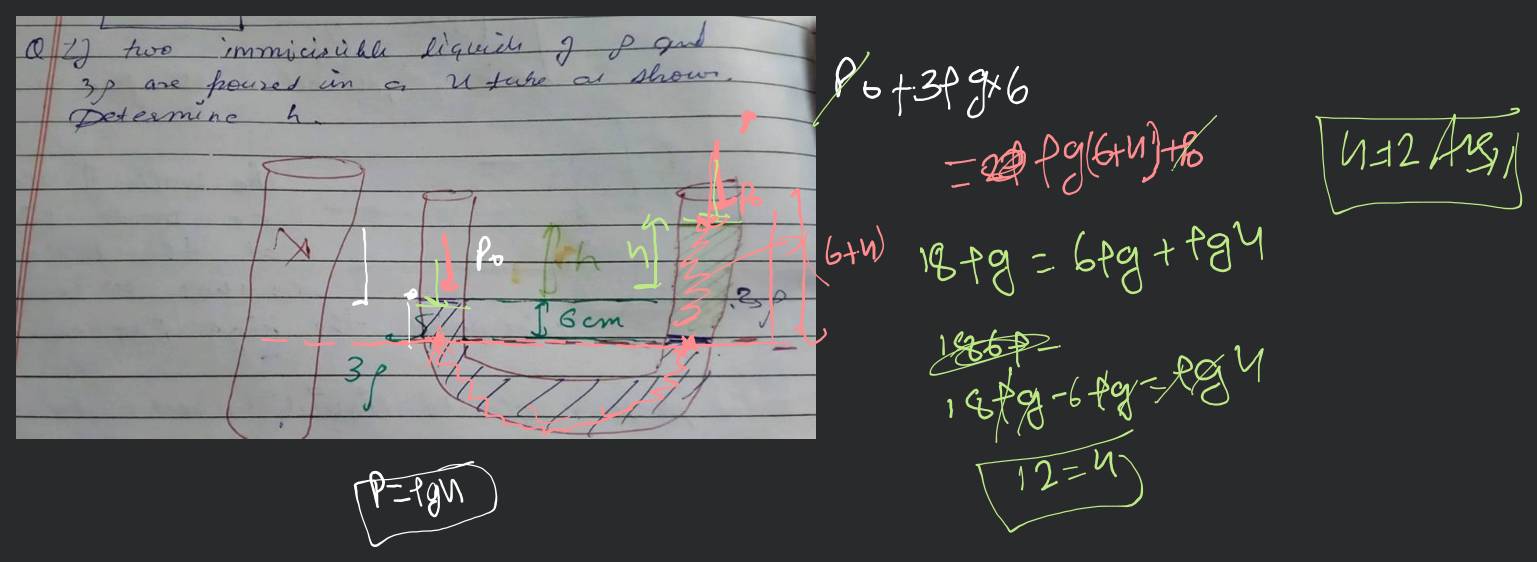 Q 2] two immicisible liquids of ρ and
3ρ are poured in a U tube as shown.
Determine h.
P₀
h
h
6cm
3ρ
P₀
(6+h)
P=ρgh
P₀+3ρg×6
= ρg(6+h)+P₀
18ρg = 6ρg + ρgh
18ρg-6ρg=ρgh
12=h
h=12 Ans,